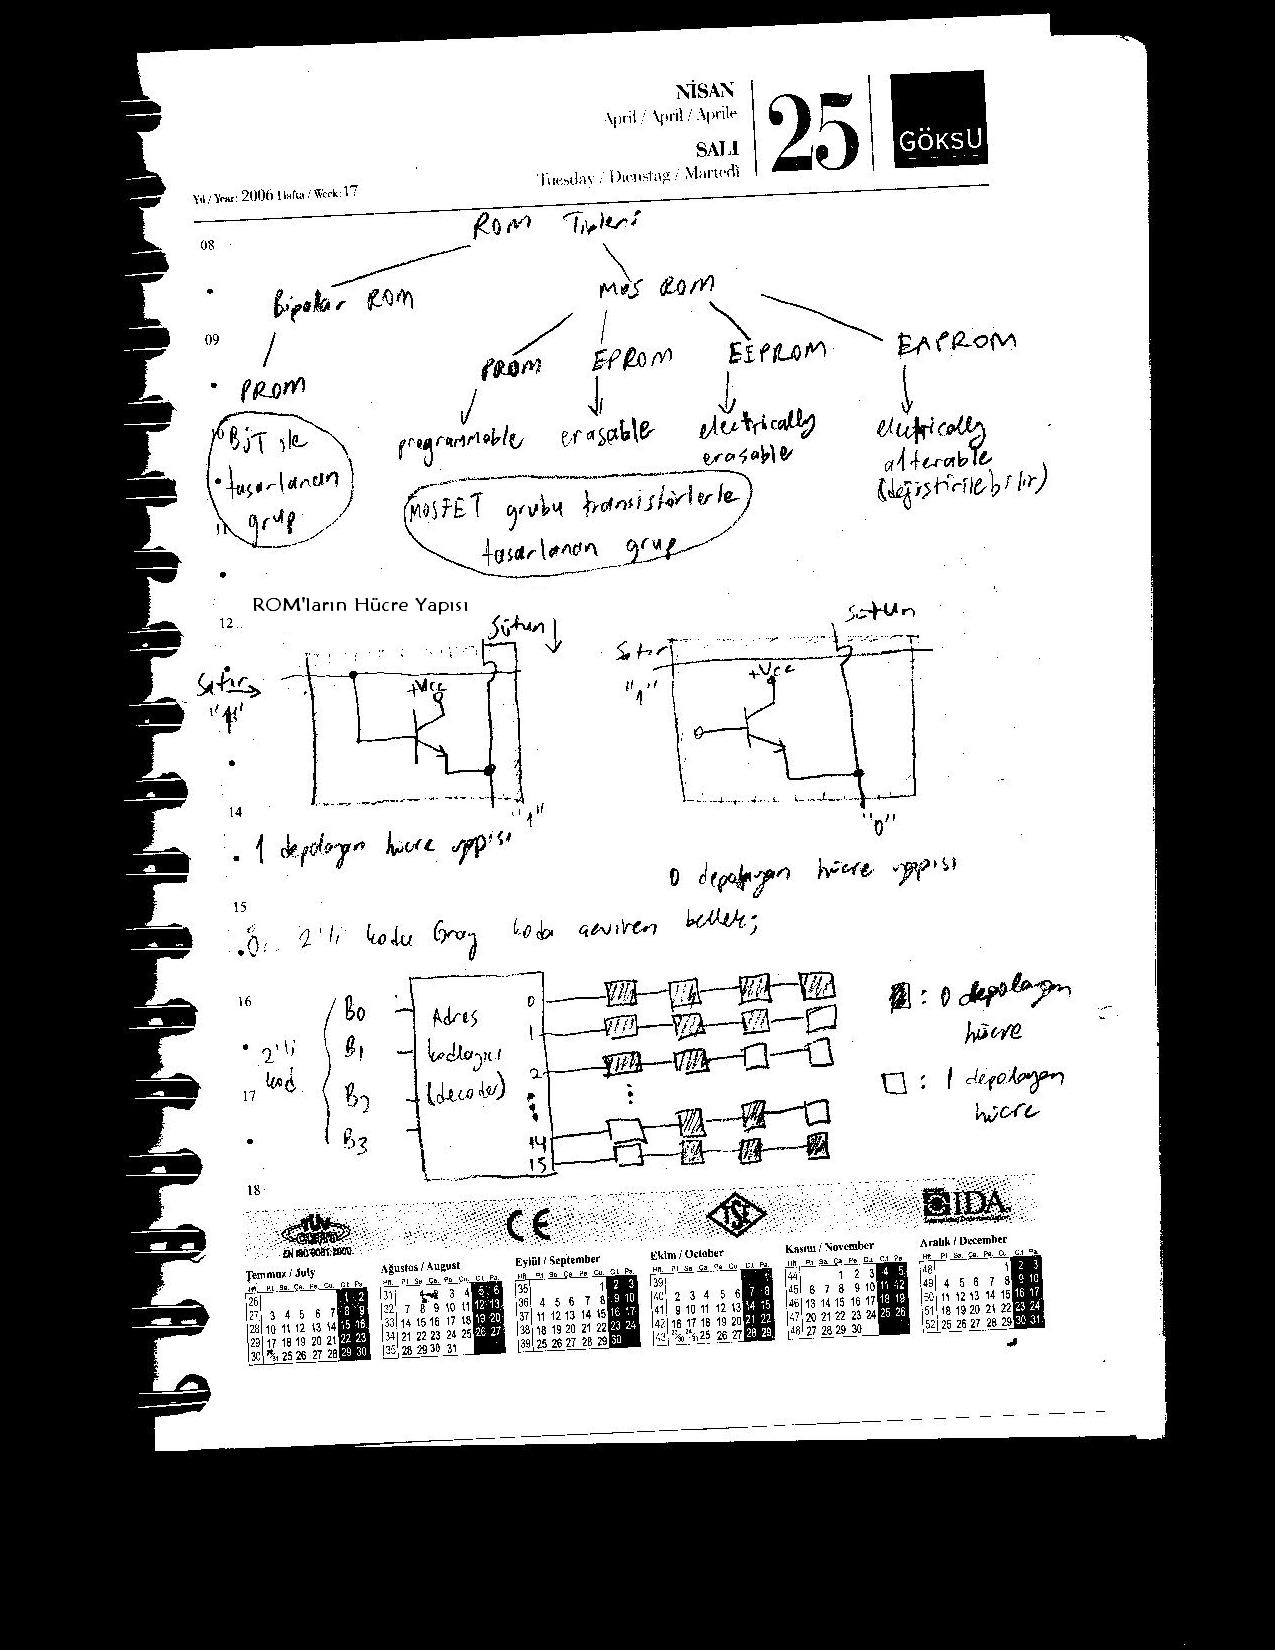 NİSAN
April / April / Aprile
SALI
Tuesday / Dienstag / Martedi
25
GÖKSU
Yıl / Year: 2006 Hafta / Week: 17
ROM Tipleri
08
Bipolar ROM
Mos ROM
09
PROM
PROM
EPROM
EEPROM
EAPROM
BJT ile
tasarlanan
grup
programmable
erasable
electrically
erasable
electrically
alterable
(değiştirilebilir)
11
MOSFET grubu transistörlerle
tasarlanan grup
ROM'ların Hücre Yapısı
12
Sütun
Satır
"1"
+Vcc
"1"
Sütun
Satır
"1"
+Vcc
"0"
14
1 depolayan hücre yapısı
0 depolayan hücre yapısı
15
Ö: 2'li kodu Gray koda çeviren bellek;
16
2'li
kod
17
B0
B1
B2
B3
Adres
kodlayıcı
(decoder)
0
1
2
14
15
: 0 depolayan
hücre
: 1 depolayan
hücre
18
TÜV
EN ISO 9001:2000
CE
TSE
IDA
Temmuz / July
Hft. Pt Sa Ça Pe Cu. Ct Pa.
26 1 2
27 3 4 5 6 7 8 9
28 10 11 12 13 14 15 16
29 17 18 19 20 21 22 23
30 24/31 25 26 27 28 29 30
Ağustos / August
Hft. Pt Sa Ça Pe Cu. Ct Pa.
31 1 2 3 4 5 6
32 7 8 9 10 11 12 13
33 14 15 16 17 18 19 20
34 21 22 23 24 25 26 27
35 28 29 30 31
Eylül / September
Hft. Pt Sa Ça Pe Cu. Ct Pa.
35 1 2 3
36 4 5 6 7 8 9 10
37 11 12 13 14 15 16 17
38 18 19 20 21 22 23 24
39 25 26 27 28 29 30
Ekim / October
Hft. Pt Sa Ça Pe Cu. Ct Pa.
39 1
40 2 3 4 5 6 7 8
41 9 10 11 12 13 14 15
42 16 17 18 19 20 21 22
43 23/30 24/31 25 26 27 28 29
Kasım / November
Hft. Pt Sa Ça Pe Cu. Ct Pa.
44 1 2 3 4 5
45 6 7 8 9 10 11 12
46 13 14 15 16 17 18 19
47 20 21 22 23 24 25 26
48 27 28 29 30
Aralık / December
Hft. Pt Sa Ça Pe Cu. Ct Pa.
48 1 2 3
49 4 5 6 7 8 9 10
50 11 12 13 14 15 16 17
51 18 19 20 21 22 23 24
52 25 26 27 28 29 30 31